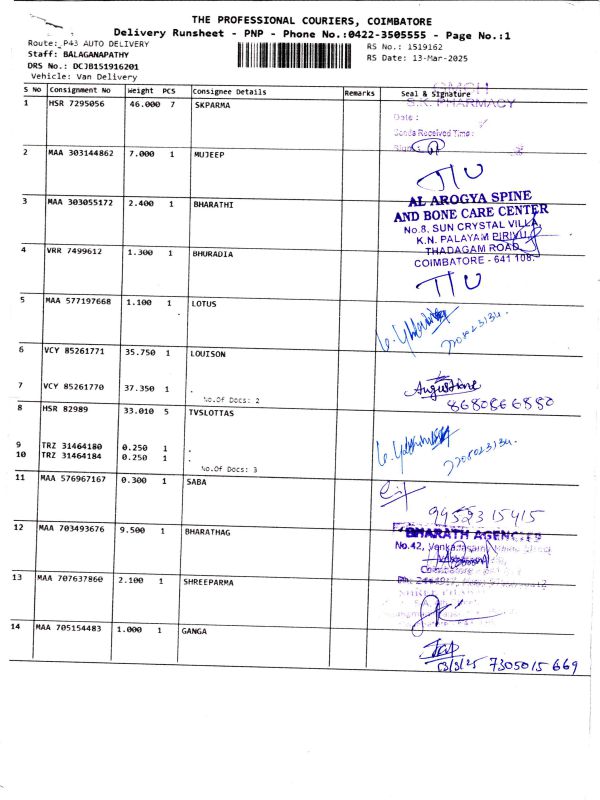 THE PROFESSIONAL COURIERS, COIMBATORE
Delivery Runsheet - PNP - Phone No.:0422-3505555 - Page No.:1
Route: P43 AUTO DELIVERY
RS No.: 1519162
Staff: BALAGANAPATHY
RS Date: 13-Mar-2025
DRS No.: DCJB151916201
Vehicle: Van Delivery
S No Consignment No Weight PCS Consignee Details Remarks Seal & Signature
1 HSR 7295056 46.000 7 SKPARMA
GMCH
S.K. PHARMACY
Date :
Goods Received Time:
Sign:
2 MAA 303144862 7.000 1 MUJEEP
3 MAA 303055172 2.400 1 BHARATHI
AL AROGYA SPINE
AND BONE CARE CENTER
No.8, SUN CRYSTAL VILLA,
K.N. PALAYAM PIRIVU,
THADAGAM ROAD,
COIMBATORE - 641 108.
4 VRR 7499612 1.300 1 BHURADIA
5 MAA 577197668 1.100 1 LOTUS
6 VCY 85261771 35.750 1 LOUISON
7 VCY 85261770 37.350 1 .
No.Of Docs: 2
Augustine
8680866880
8 HSR 82989 33.010 5 TVSLOTTAS
9 TRZ 31464180 0.250 1 .
10 TRZ 31464184 0.250 1 .
No.Of Docs: 3
11 MAA 576967167 0.300 1 SABA
9952315415
12 MAA 703493676 9.500 1 BHARATHAG
BHARATH AGENCIES
No.42,
13 MAA 707637860 2.100 1 SHREEPARMA
14 MAA 705154483 1.000 1 GANGA
13/3/25 7305015669